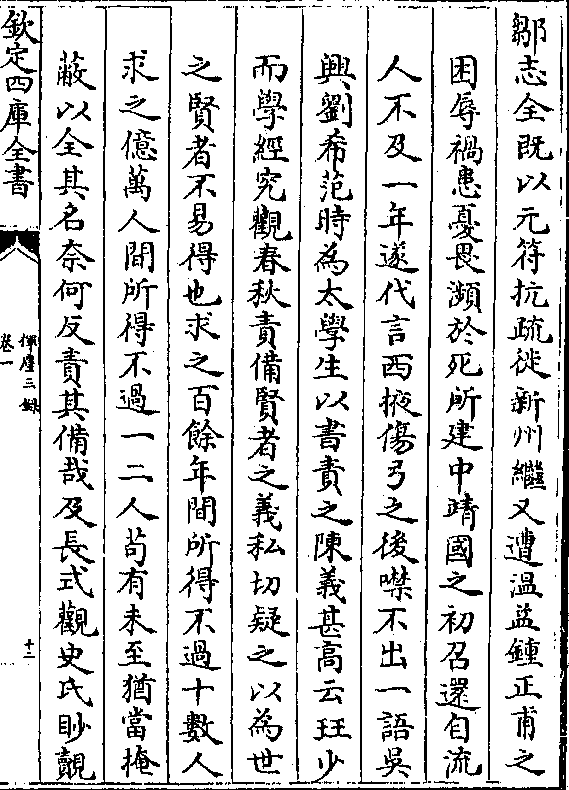 鄒志全既以元符抗疏徙新州繼又遭温益鍾正甫之
困辱禍患憂畏瀕於死所建中靖國之初召還自流
人不及一年遂代言西掖傷弓之後噤不出一語吳
興劉希范時為太學生以書責之陳義甚高云珏少
而學經究觀春秋責備賢者之義私切疑之以為世
之賢者不易得也求之百餘年間所得不過十數人
求之億萬人間所得不過一二人苟有未至猶當掩
蔽以全其名奈何反責其備哉及長式觀史氏眇覿
欽定四庫全書
揮麈三錄
卷一
十二